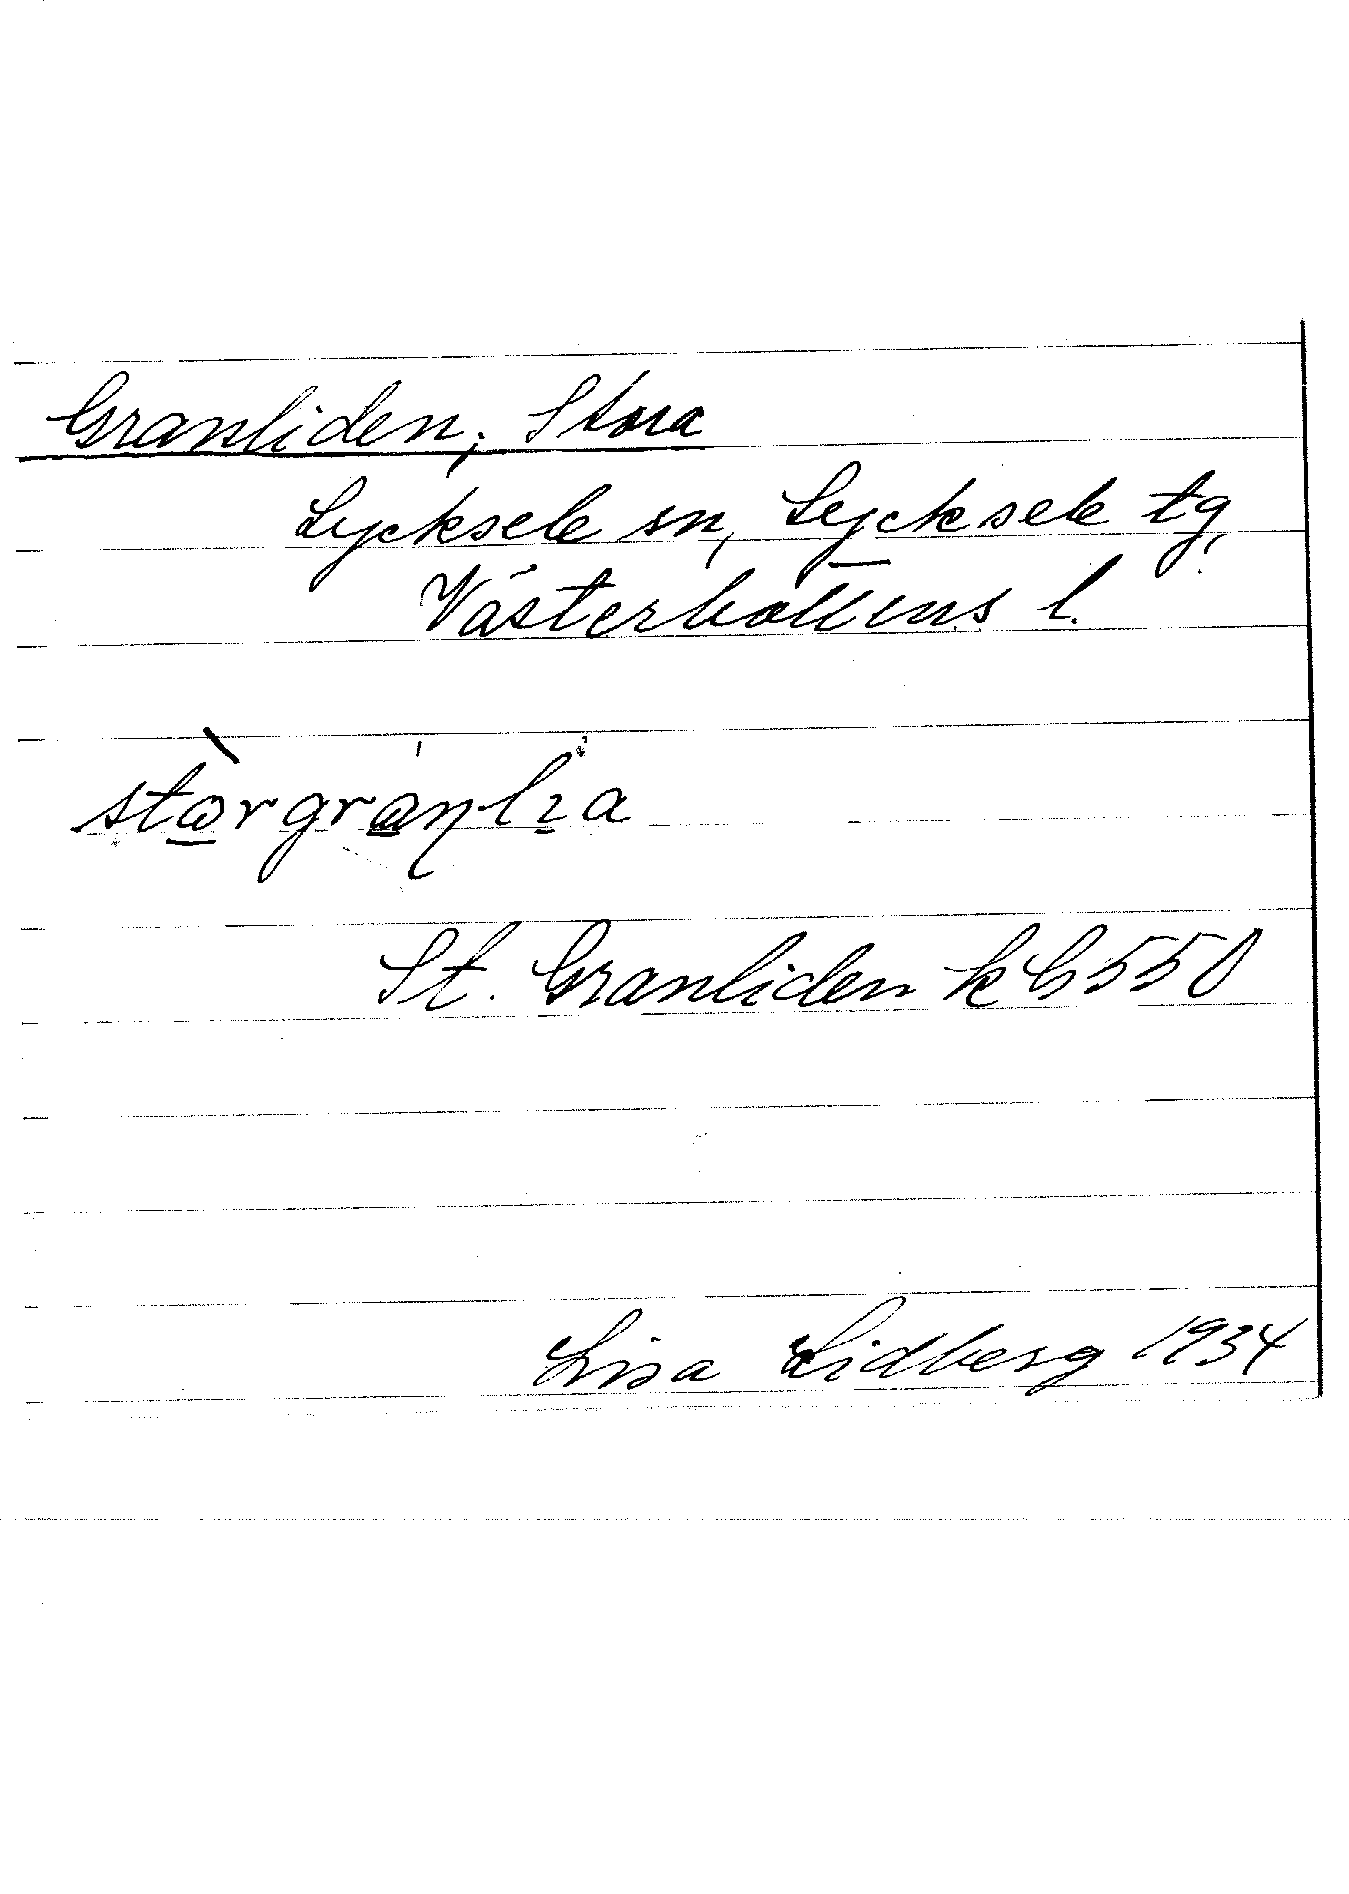 Granliden, Stora
Lycksele sn, Lycksele tg,
Västerbottens l.
stòrgranlia
St. Granliden kb 550
Lisa Lidberg 1934